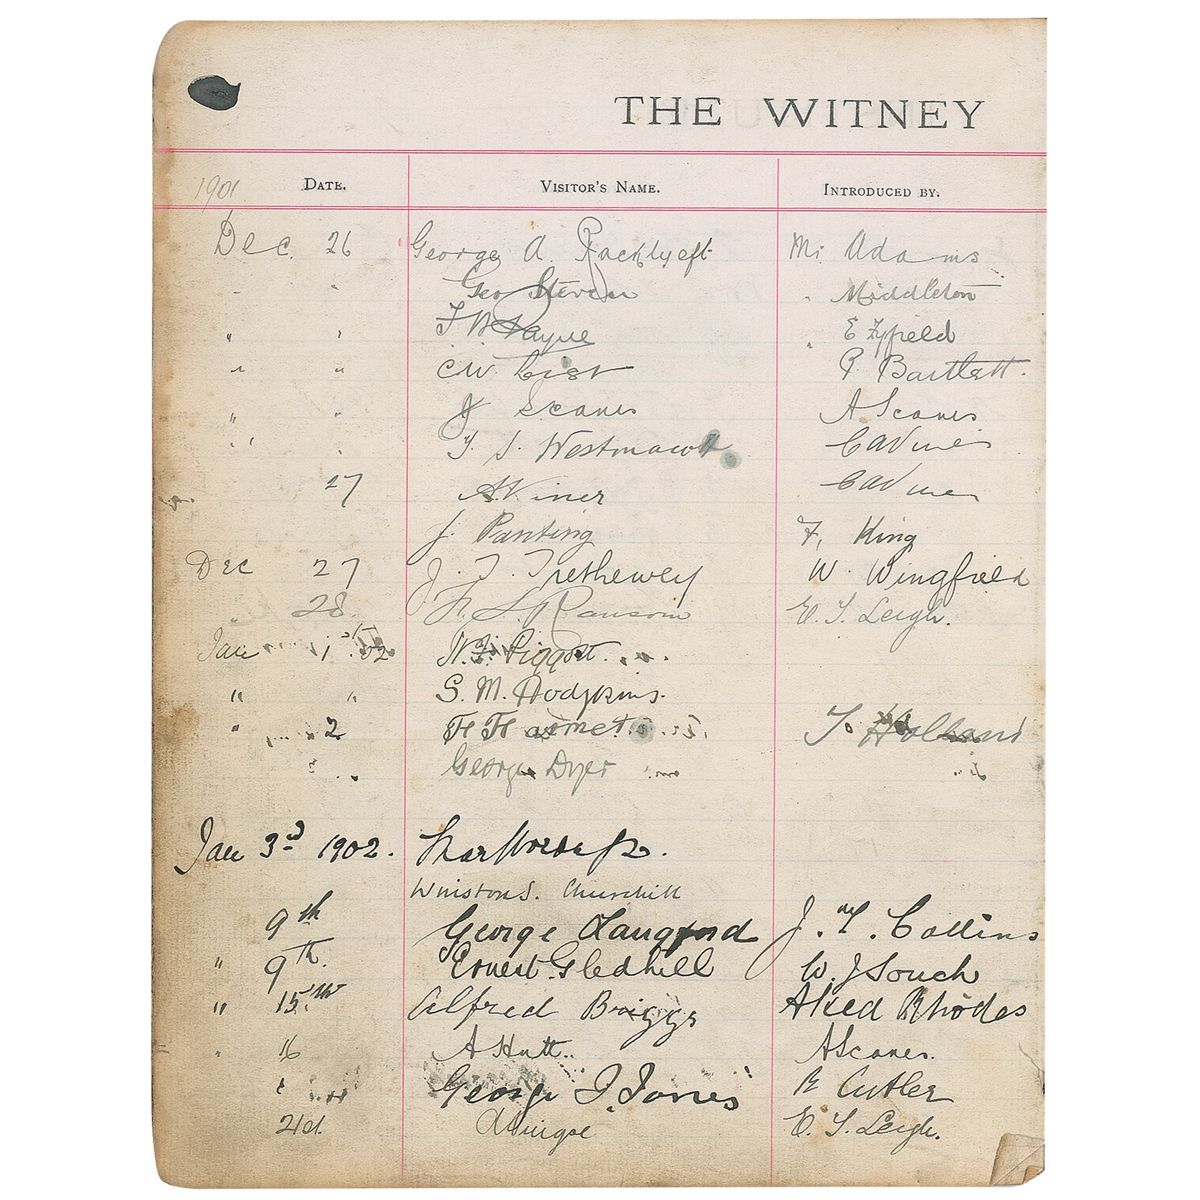 THE WITNEY
1901 DATE. VISITOR'S NAME. INTRODUCED BY.
Dec. 26 George A. Mr Adams
" " Geo Steven " Middleton
" " Payne " E Fyfield
" " C.W. List P. Bartlett.
" " J Scanes A Scanes
" " T. J. Westmacott
27 A Viner
J. Panting F. King
Dec 27 J. T. Trethewey W. Wingfield
" 28 F. L. Ransom E. T. Leigh.
Jan 1st 02 W. F. Piggott.
" " S. M. Hodgkins.
" 2 H Holland
George Dyer
Jan 3rd 1902.
Winston S. Churchill
9th George Langford J. T. Collins
" 9th. Ernest Gledhill W. J Souch
" 15th Alfred Briggs Aked Rhodes
" 16 A Hutt. A Scanes.
George J. Jones R Cutler
21d. E. T. Leigh.